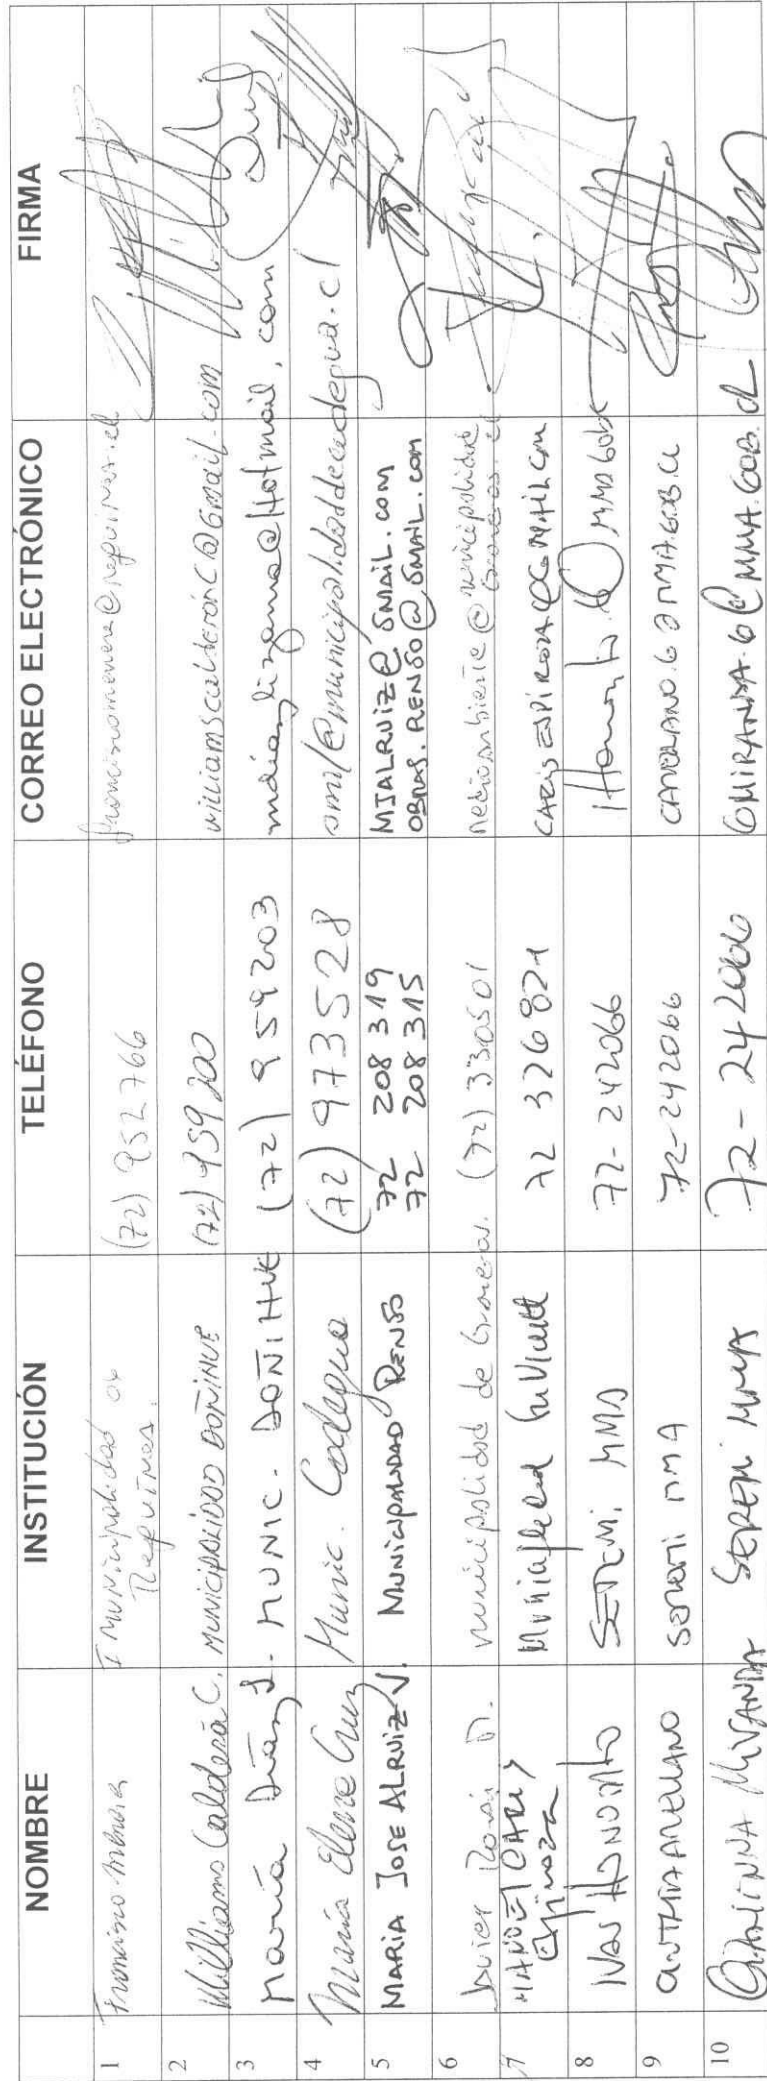 NOMBRE INSTITUCIÓN TELÉFONO CORREO ELECTRÓNICO FIRMA
1 Francisco I Municipalidad de (72) 952766
Requinoa.
2 Williams Calderón C. MUNICIPALIDAD DOÑIHUE (72) 959200 williamscalderonc@gmail.com
3 María Díaz L. MUNIC. DOÑIHUE (72) 959203 mdiazlizama@Hotmail.com
4 María Elena Cruz Munic. Codegua (72) 973528 omil@municipalidaddecodegua.cl
5 MARIA JOSE ALRUIZ V. MUNICIPALIDAD RENGO 72 208 319 MJALRUIZ@GMAIL.COM
72 208 315 OBRAS.RENGO@GMAIL.COM
6 Javier municipalidad de Graneros. (72) 330501 medioambiente@municipalidad
graneros.cl
7 MANUEL CARIS Municipalidad 72 326821 CARISESPINOZA@GMAIL.COM
Espinoza
8 SEREMI MMA 72-242066
9 CINTHIA ARELLANO SEREMI MMA 72-242066 CARELLANO.6@MMA.GOB.CL
10 GIANINNA MIRANDA SEREMI MMA 72-242066 GMIRANDA.6@MMA.GOB.CL